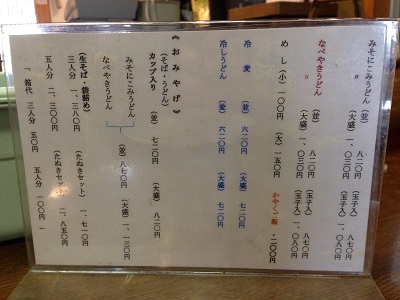 みそにこみうどん （並） 八二〇円 （玉子入） 八七〇円
〃 （大盛） 一、〇三〇円 （玉子入） 一、〇八〇円
なべやきうどん （並） 八二〇円 （玉子入） 八七〇円
〃 （大盛） 一、〇三〇円 （玉子入） 一、〇八〇円
めし （小） 一〇〇円 （大） 一五〇円 かやくご飯 ・二〇〇円
冷麦 （並） 六二〇円 （大盛） 七二〇円
冷しうどん （並） 六二〇円 （大盛） 七二〇円
《おみやげ》
（そば・うどん）
カップ入り （並） 七二〇円 （大盛） 八二〇円
みそにこみうどん
なべやきうどん （並） 八七〇円 （大盛） 一、一三〇円
（生そば・袋詰め）
三人分 一、三八〇円 （たぬきセット） 一、七一〇円
五人分 二、三〇〇円 （たぬきセット） 二、八五〇円
「箱代 三人分 五〇円 五人分 一〇〇円」